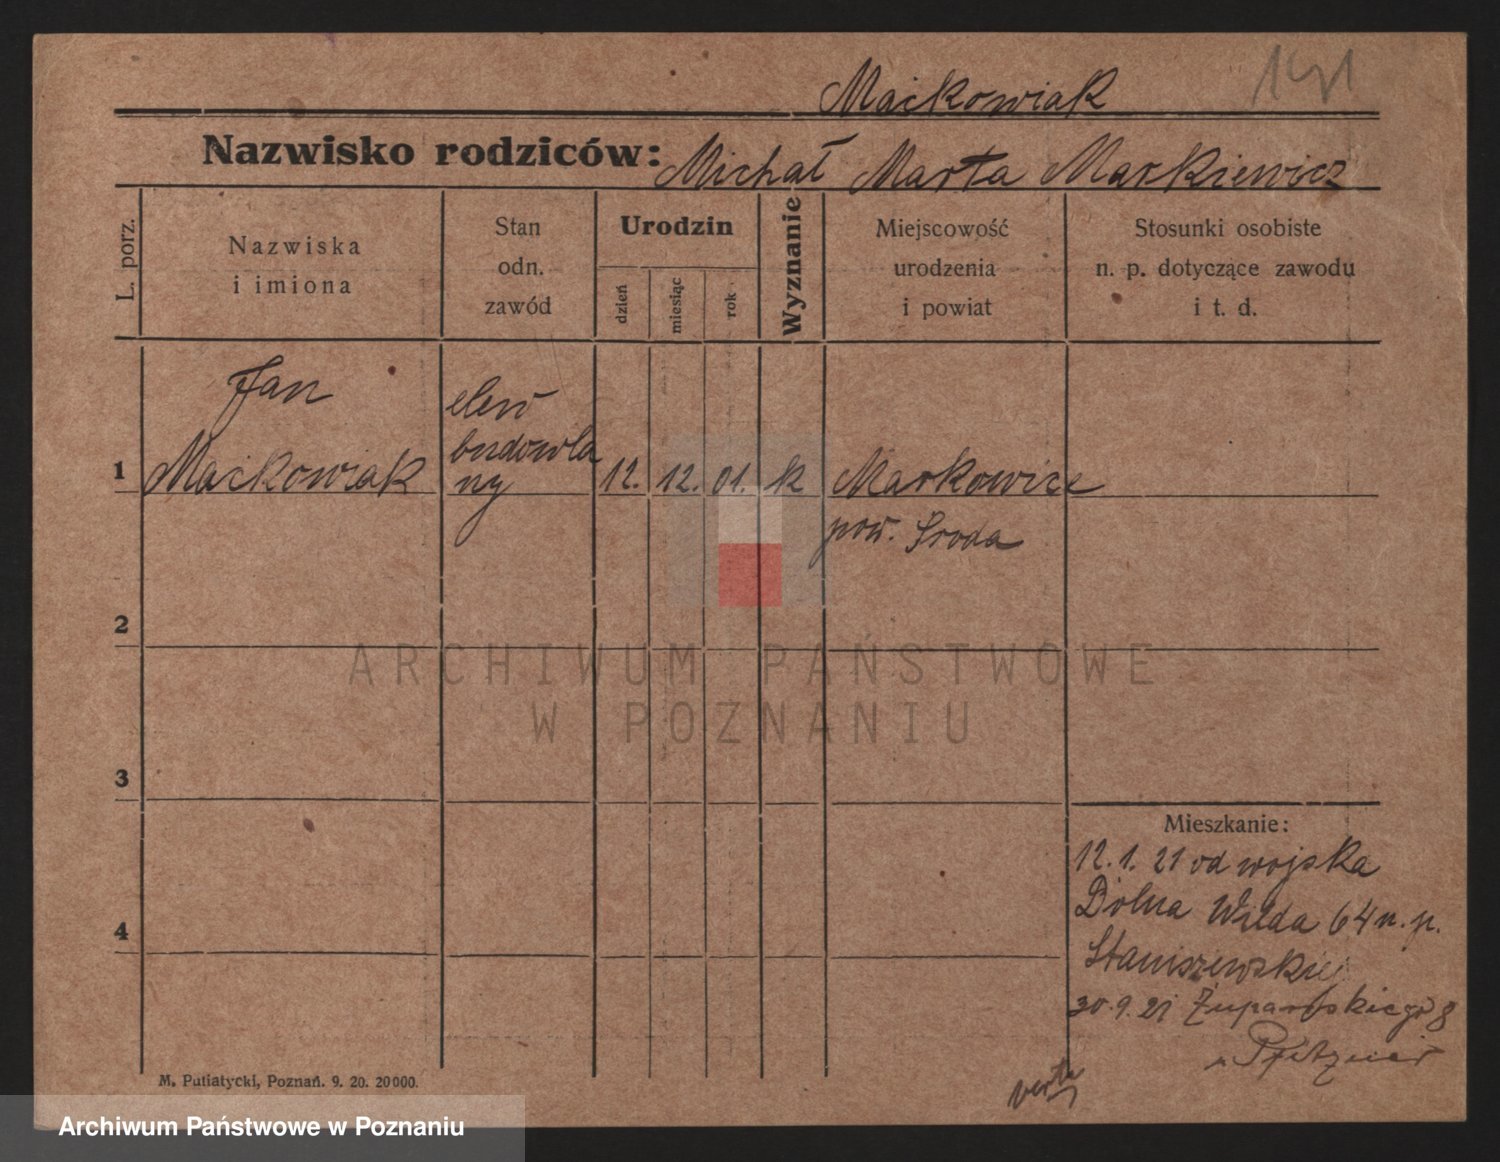 Maćkowiak
Nazwisko rodziców: Michał Marta Markiewicz
L. porz.
Nazwiska
i imiona
Stan
odn.
zawód
Urodzin
dzień
miesiąc
rok
Wyznanie
Miejscowość
urodzenia
i powiat
Stosunki osobiste
n. p. dotyczące zawodu
i t. d.
1
Jan
Maćkowiak
elew
budowla
ny
12.
12.
01.
k
Markowice
pow. Sroda
2
ARCHIWUM PAŃSTWOWE
W POZNANIU
3
4
Mieszkanie:
12.1.21 od wojska
Dolna Wilda 64 n. p.
Staniszewskiej
30.9.21 Żupańskiego 8
Pfitzner
verte
M. Putiatycki, Poznań. 9. 20. 20000.
Archiwum Państwowe w Poznaniu